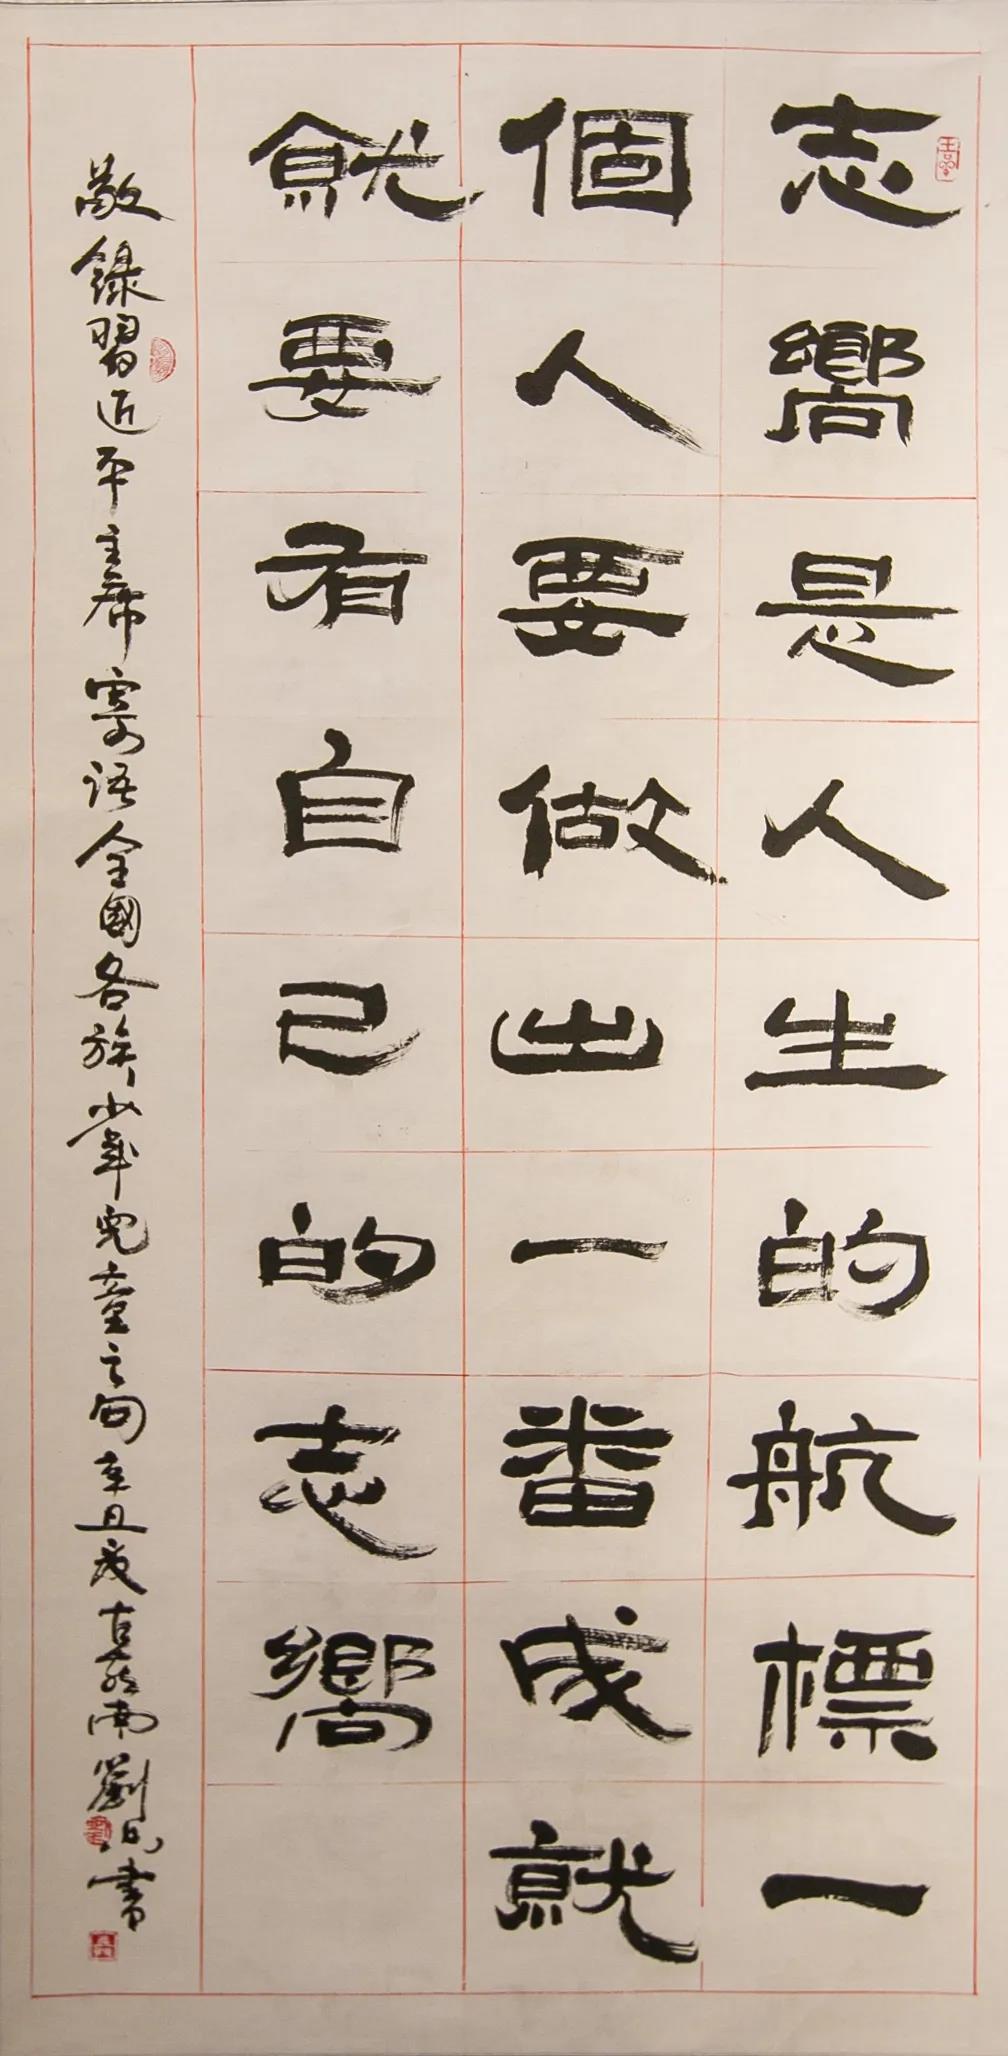 志嚮是人生的航標一
個人要做出一番成就
就要有自己的志嚮
敬錄習近平主席寄語全國各族少年兒童之句辛丑夏古南劉書